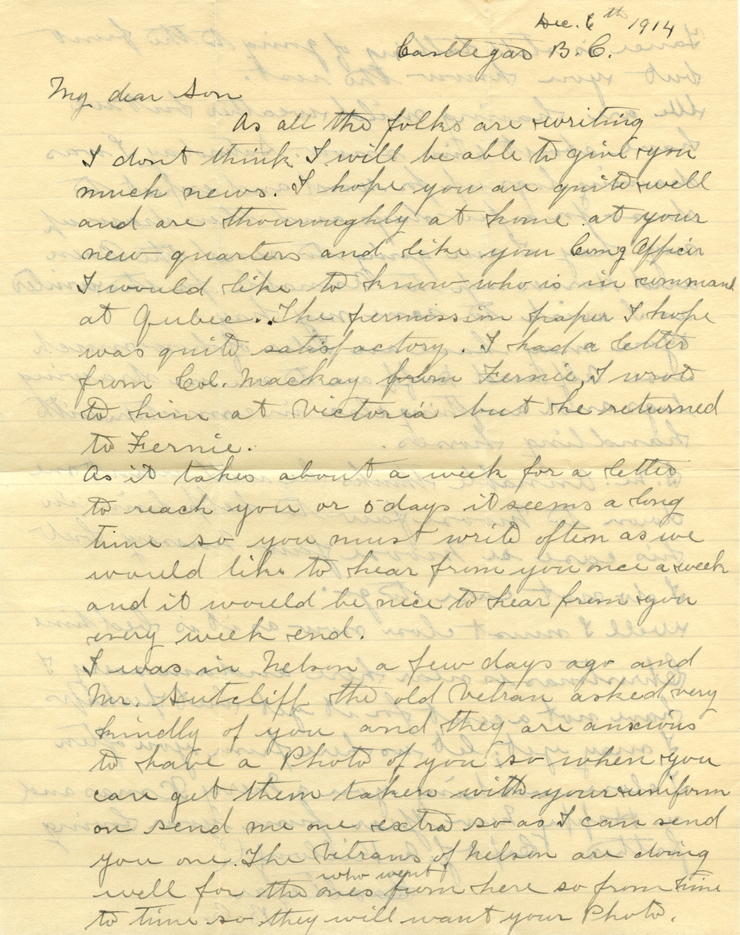 Dec. 6th 1914
Castlegar B.C.
My dear Son
As all the folks are writing
I dont think I will be able to give you
much news. I hope you are quite well
and are thouroughly at home at your
new quarters and like your Comg Officer
I would like to know who is in command
at Qubec. The permission paper I hope
was quite satisfactory. I had a letter
from Col. Mackay from Fernie, I wrote
to him at Victoria but he returned
to Fernie.
As it takes about a week for a letter
to reach you or 5 days it seems a long
time so you must write often as we
would like to hear from you once a week
and it would be nice to hear from you
every week end.
I was in Nelson a few days ago and
Mr. Sutcliff the old Vetran asked very
kindly of you and they are anxious
to have a Photo of you so when you
can get them taken with your uniform
on send me one extra so as I can send
you one. The Vetrans of Nelson are doing
well for the ones who went from here so from time
to time so they will want your Photo.